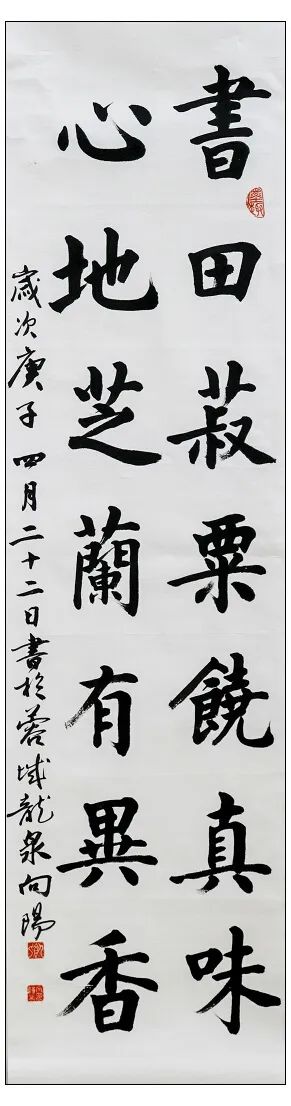 書田菽粟饒真味
心地芝蘭有異香
歲次庚子四月二十二日書於蓉城龍泉向陽